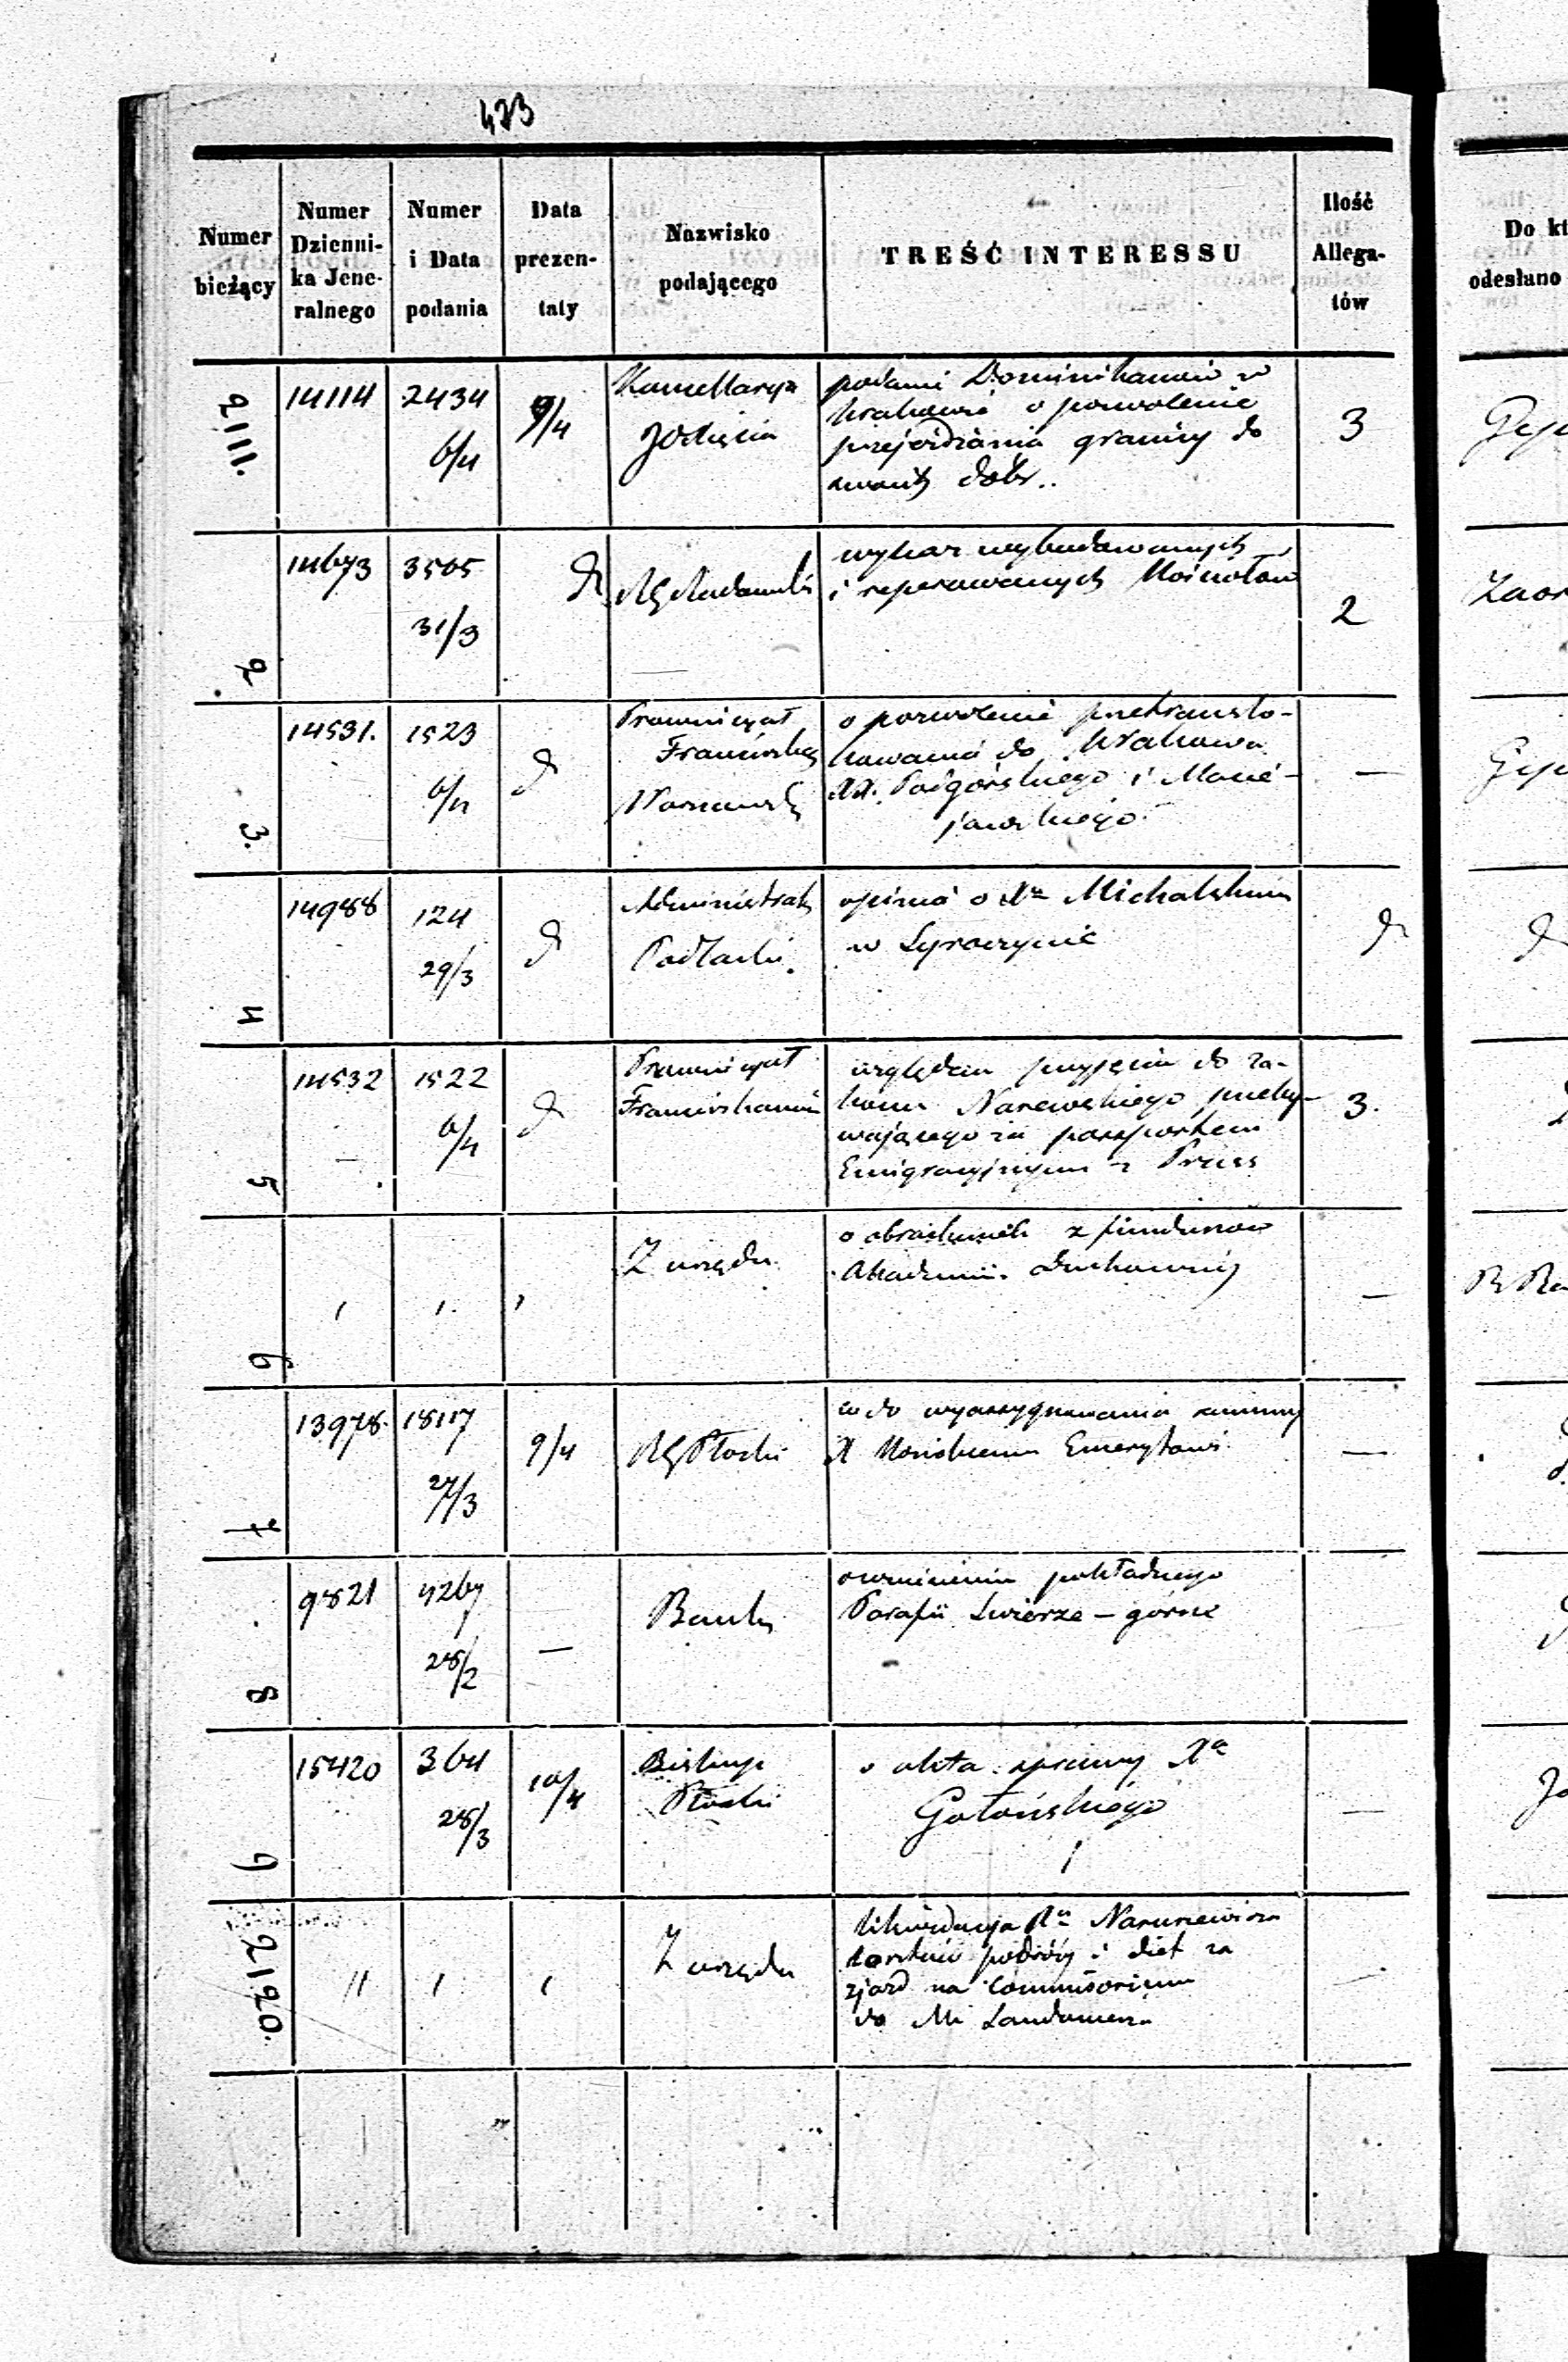 423
Numer bieżący
Numer Dzienni-ka Jene-ralnego
Numer i Data podania
Data prezen-taty
Nazwisko podającego
TREŚĆ INTERESSU
Ilość Allega-tów
Do kt
odesłano
2111.
14114
2434
6/4
9/4
podanie Dominikanów w
Krakowie o pozwolenie
przejeżdżania granicy do
swoich dóbr..
3
2
14673
3505
31/3
RG Radomski
wykaz wybudowanych
i reperowanych Kościołów
2
3.
14531.
1523
6/4
Prowincyał
Franciszk
Warszawsk
o pozwolenie przetranslo-
kowania do Krakowa
XX. Podgórskiego i Macie-
jowskiego
—
4
14988
124
29/3
Administrat
Podlaski.
opinia o Xu Michalskim
w
5
14532
1522
6/4
Prowincyał
Franciszkanów
względem przyjęcia do za-
konu Narewskiego przeby-
wającego za passportem
Emigracyjnym z Pruss
3.
6
Z urzędu
o obrachunek z funduszów
Akademii Duchownej
—
7
13978.
18117
27/3
9/4
RG Płocki
co do wyassygnowania summy
X Emerytowi
—
8
9821
4267
28/2
—
Bank
pokładnego
Parafii Świerze – górne
9
15420
364
28/3
10/4
Biskup
Płocki
o akta sprawy Xa
Gołońskiego
—
2120.
Z urzędu
likwidacja Ra Naruszewicza
kosztów podróży i diet za
zjazd na Commissorium
do